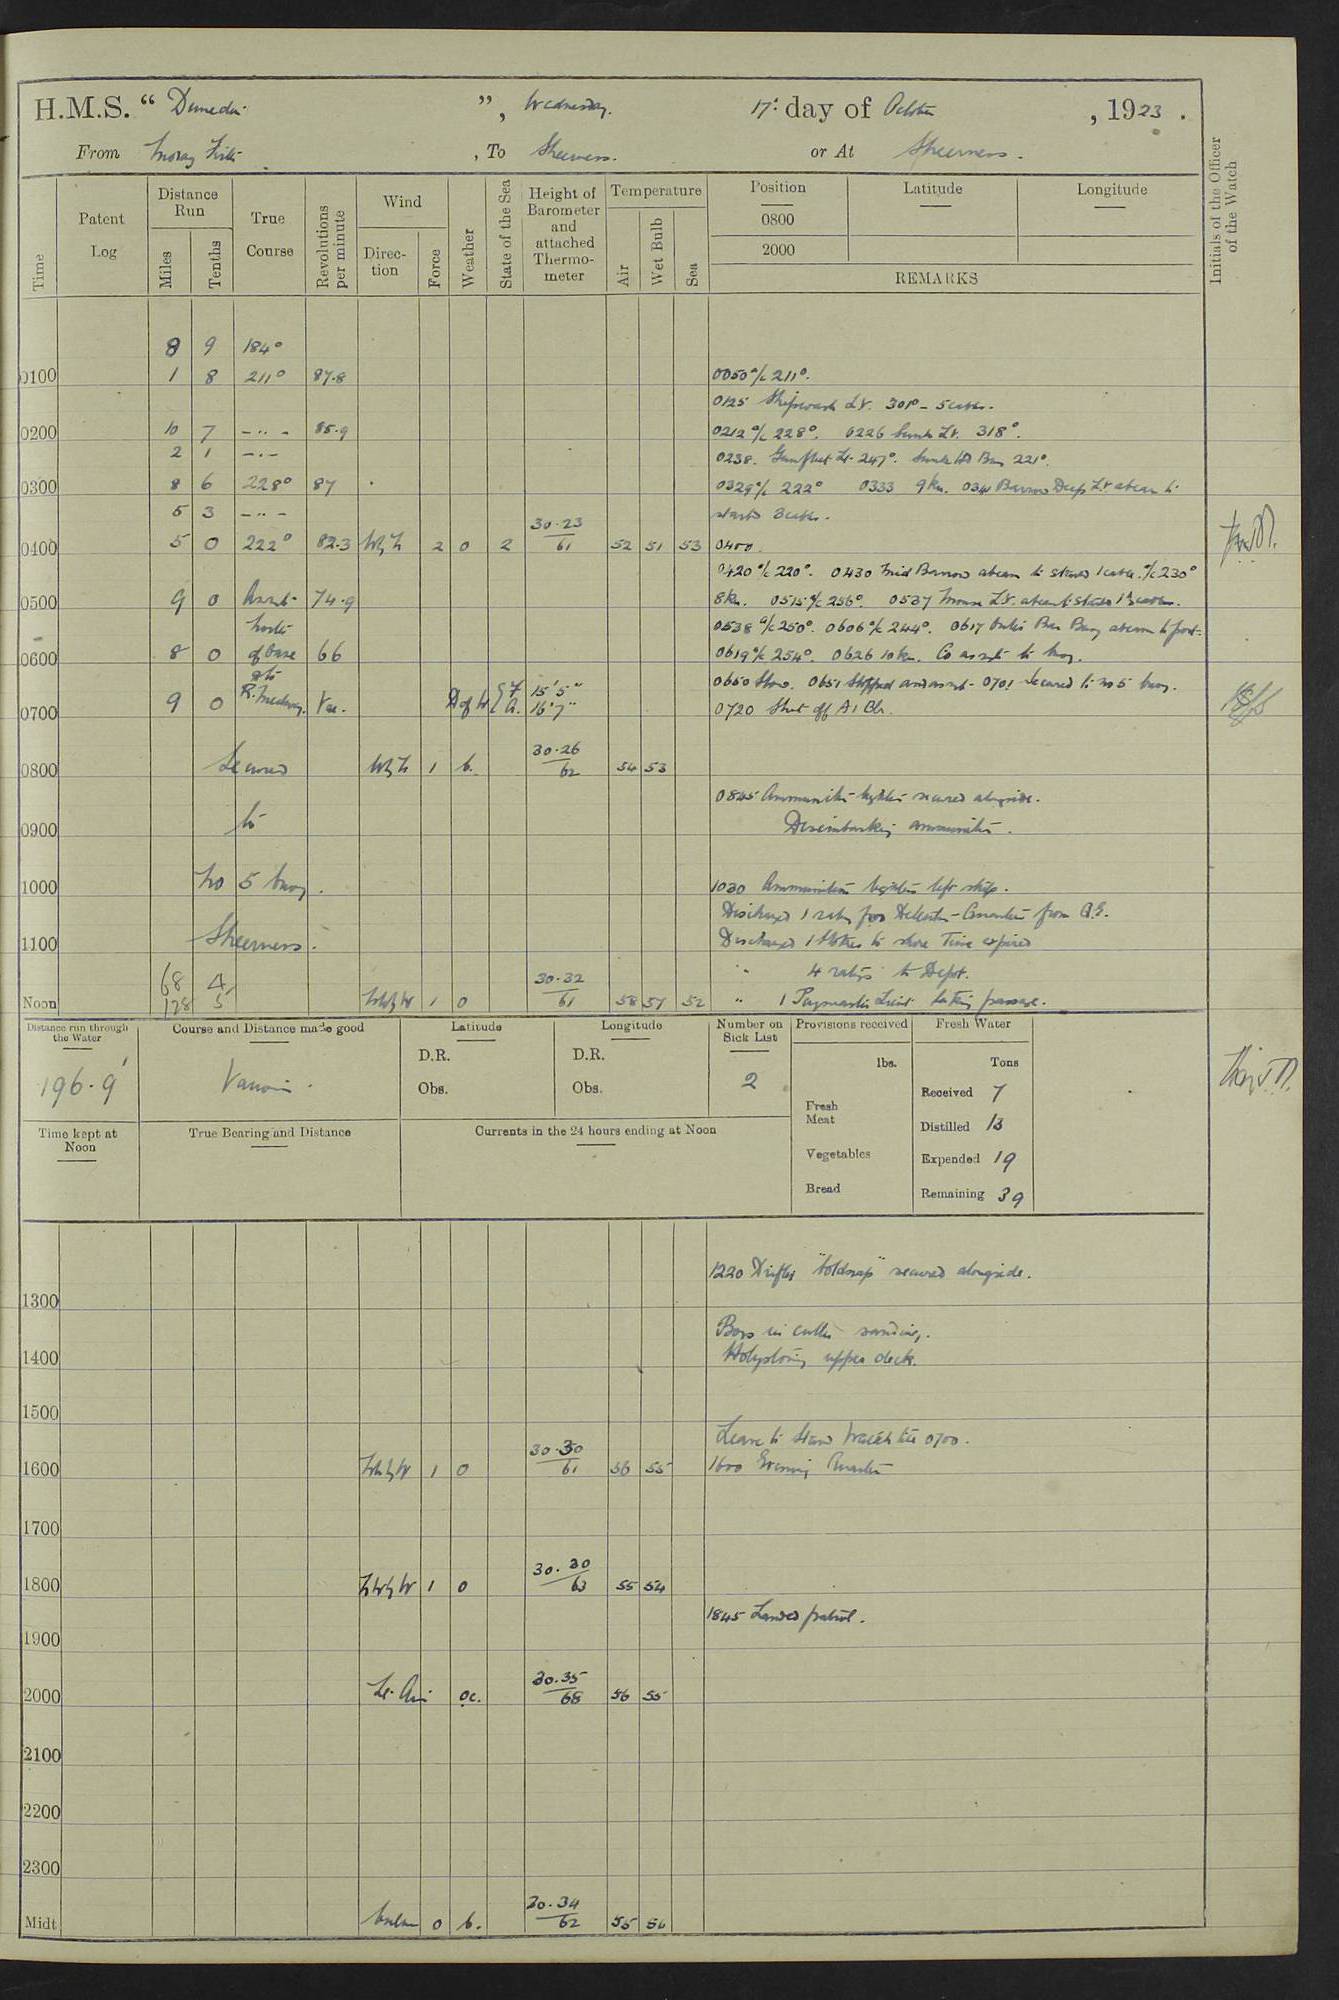 H.M.S. “ Dunedin ” , Wednesday. 17th day of October , 1923 .
From Moray Firth , To Sheerness. or At Sheerness.
Time
Patent Log
Distance Run
Miles
Tenths
True Course
Revolutions per minute
Wind
Direction
Force
Weather
State of the Sea
Height of Barometer and attached Thermometer
Temperature
Air
Wet Bulb
Sea
Position
Latitude
Longitude
0800
2000
REMARKS
Initials of the Officer of the Watch
8 9 184°
0100 1 8 211° 87.8 0050 a/c 211°.
0125 Shipwash Lt. 301° - 5 cables.
0200 10 7 -"- 85.9 0212 a/c 228°. 0226 Sunk Lt. 318°.
2 1 -"- 0238. Gunfleet Lt. 247°. Sunk Hd Buoy 221°.
0300 8 6 228° 87 0329 a/c 222° 0333 9 kn. 0341 Barrow Deep L.V. abeam to
5 3 -"- starbd 3 cables.
0400 5 0 222° 82.3 2 0 2 30.23 61 52 51 53 0400.
0420 a/c 220°. 0430 Mid Barrow abeam to starbd 1 cable. a/c 230°
0500 9 0 74.9 8 kn. 0515 a/c 256°. 0537 Mouse L.V. abeam to starbd
0538 a/c 250°. 0606 a/c 244°. 0617 Buoy abeam to port.
0600 8 0 of base 66 0619 a/c 254°. 0626 10 kn. Co as req to buoy.
0650 Slow. 0651 Stopped and as req. 0701 Secured to No 5 buoy.
0700 9 0 R. Medway. Var. D of W F 15' 5" A. 16' 7" 0720 Shut off A1 Blr.
0800 Secured 1 b. 30.26 62 54 53
0845 Ammunition lighter secured alongside.
0900 to Disembarking ammunition.
1000 No 5 buoy. 1030 Ammunition lighter left ship.
Discharged 1 rating from Q.E.
1100 Sheerness. Discharged 1 Stoker to shore Time expired
68 4 " 4 ratings to Depot.
Noon 128 5 NWbyW 1 0 30.32 61 58 57 52 " 1 Paymaster Lieut taking passage.
Distance run through the Water
196.9'
Course and Distance made good
Various.
Latitude
D.R.
Obs.
Longitude
D.R.
Obs.
Number on Sick List
2
Provisions received
lbs.
Fresh Meat
Vegetables
Bread
Fresh Water
Tons
Received 7
Distilled 13
Expended 19
Remaining 39
Time kept at Noon
True Bearing and Distance
Currents in the 24 hours ending at Noon
1220 Drifter "Coldsnap" secured alongside.
1300
Boys in cutter sounding.
1400 Holystoning upper deck.
1500
Leave to Starbd Watch till 0700.
1600 NWbyW 1 0 30.30 61 56 55 1600 Evening Quarters
1700
1800 NWbyW 1 0 30.30 63 55 54
1845 Landed patrol.
1900
2000 Lt. Air oc. 30.35 68 56 55
2100
2200
2300
Midt Calm 0 b. 30.34 62 55 54